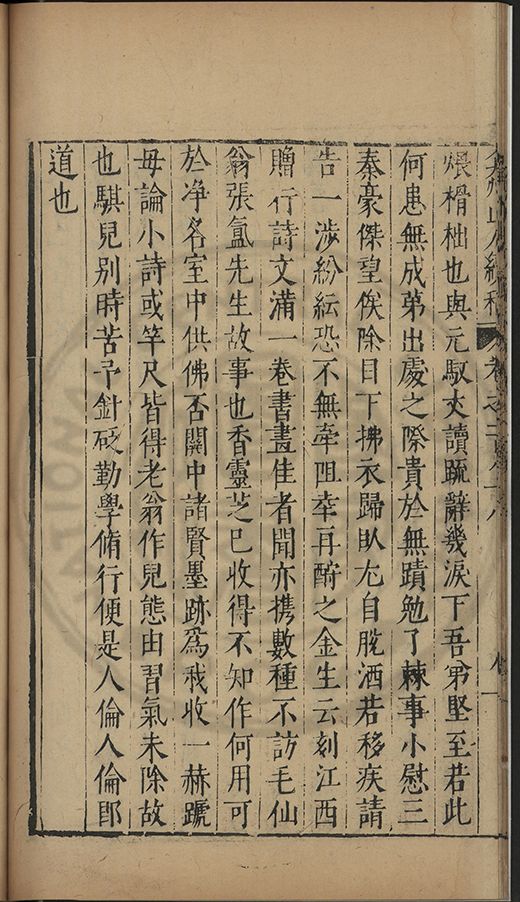 煨榾柮也與元馭丈讀䟽辭幾淚下吾弟堅至若此
何患無成第出處之際貴於無蹟勉了棘事小慰三
秦豪傑望俟除目下拂衣歸臥尢自脫洒若移疾請
告一涉紛紜恐不無牽阻幸再酌之金生云刻江西
贈行詩文滿一卷書畫佳者聞亦攜數種不訪毛仙
翁張氳先生故事也香靈芝已收得不知作何用可
於淨名室中供佛否關中諸賢墨跡為我收一赫蹏
毋論小詩或竿尺皆得老翁作兒態由習氣未除故
也騏兒別時苦予針砭勤學脩行便是人倫人倫卽
道也